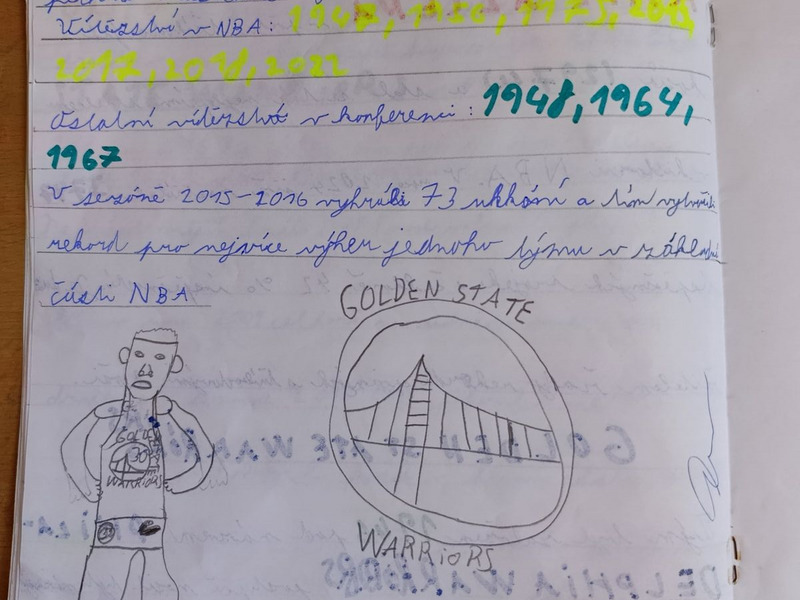 Vítězství v NBA: 1947, 1956, 1975, 2015,
2017, 2018, 2022
Ostatní vítězství v konferenci: 1948, 1964,
1967
V sezóně 2015-2016 vyhráli 73 utkání a tím vytvořili
rekord pro nejvíce výher jednoho týmu v základní
části NBA
GOLDEN STATE
WARRIORS
GOLDEN
30
WARRIORS